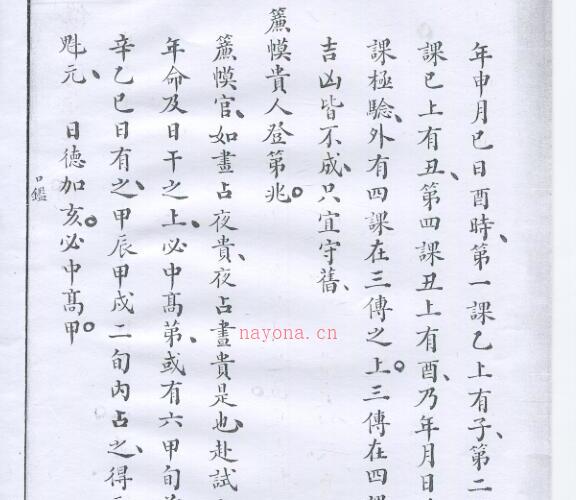 年申月巳日酉時、第一課乙上有子、第二
課巳上有丑、第四課丑上有酉、乃年月日
課極驗、外有四課在三傳之上。三傳在四課
吉凶皆不成、只宜守舊、
簾幙貴人登第兆。
簾幙官、如晝占夜貴、夜占晝貴是也、赴試
年命及日干之上、必中高第、或有六甲旬
辛乙巳日有之、甲辰甲戌二旬內占之、得
魁元、日德加亥。必中高甲。
口鑑
nayona.cn